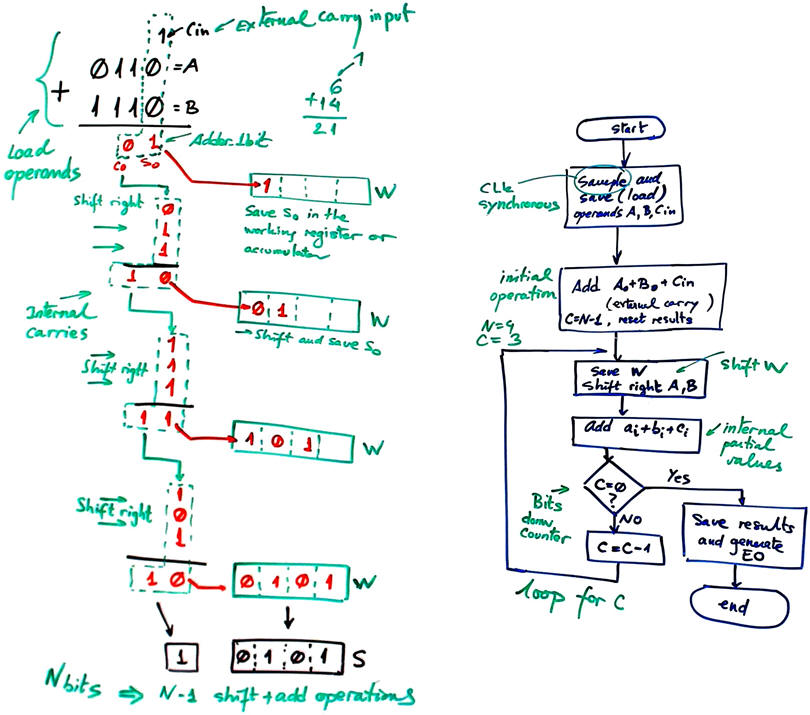 1 Cin External carry input
0110 = A
+ 1110 = B
1
6
+14
21
Load
operands
0 1 Adder_1bit
C0 S0
1 W
Shift right
Save S0 in the
working register or
accumulator
0
1
1
1 0
0 1 W
Shift and save S0
Internal
Carries
Shift right
1
1
1
1 1
1 0 1 W
Shift right
1
0
1
1 0
0 1 0 1 W
1
0 1 0 1 S
N bits ⇒ N-1 shift + add operations
start
CLK
synchronous
Sample and
save (load)
operands A, B, Cin
initial
operation
Add A0+B0+Cin
(external carry)
C=N-1, reset results
N=4
C=3
Save W
Shift right A, B
shift W
Add ai+bi+ci
internal
partial
values
C=0
?
Yes
NO
Bits
down
counter
C=C-1
Save results
and generate
EO
end
loop for C